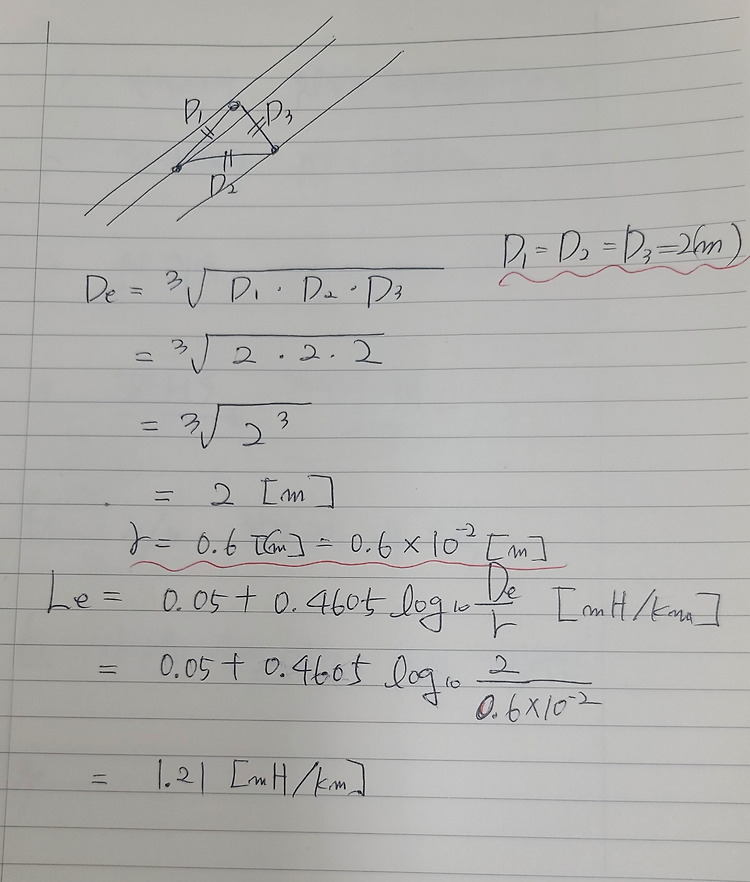 D₁ D₃
D₂
D₁ = D₂ = D₃ = 2(m)
De = ³√(D₁ · D₂ · D₃)
= ³√(2 · 2 · 2)
= ³√(2³)
= 2 [m]
r = 0.6 [cm] = 0.6 × 10⁻² [m]
Le = 0.05 + 0.4605 log₁₀ De/r [mH/km]
= 0.05 + 0.4605 log₁₀ 2/(0.6×10⁻²)
= 1.21 [mH/km]